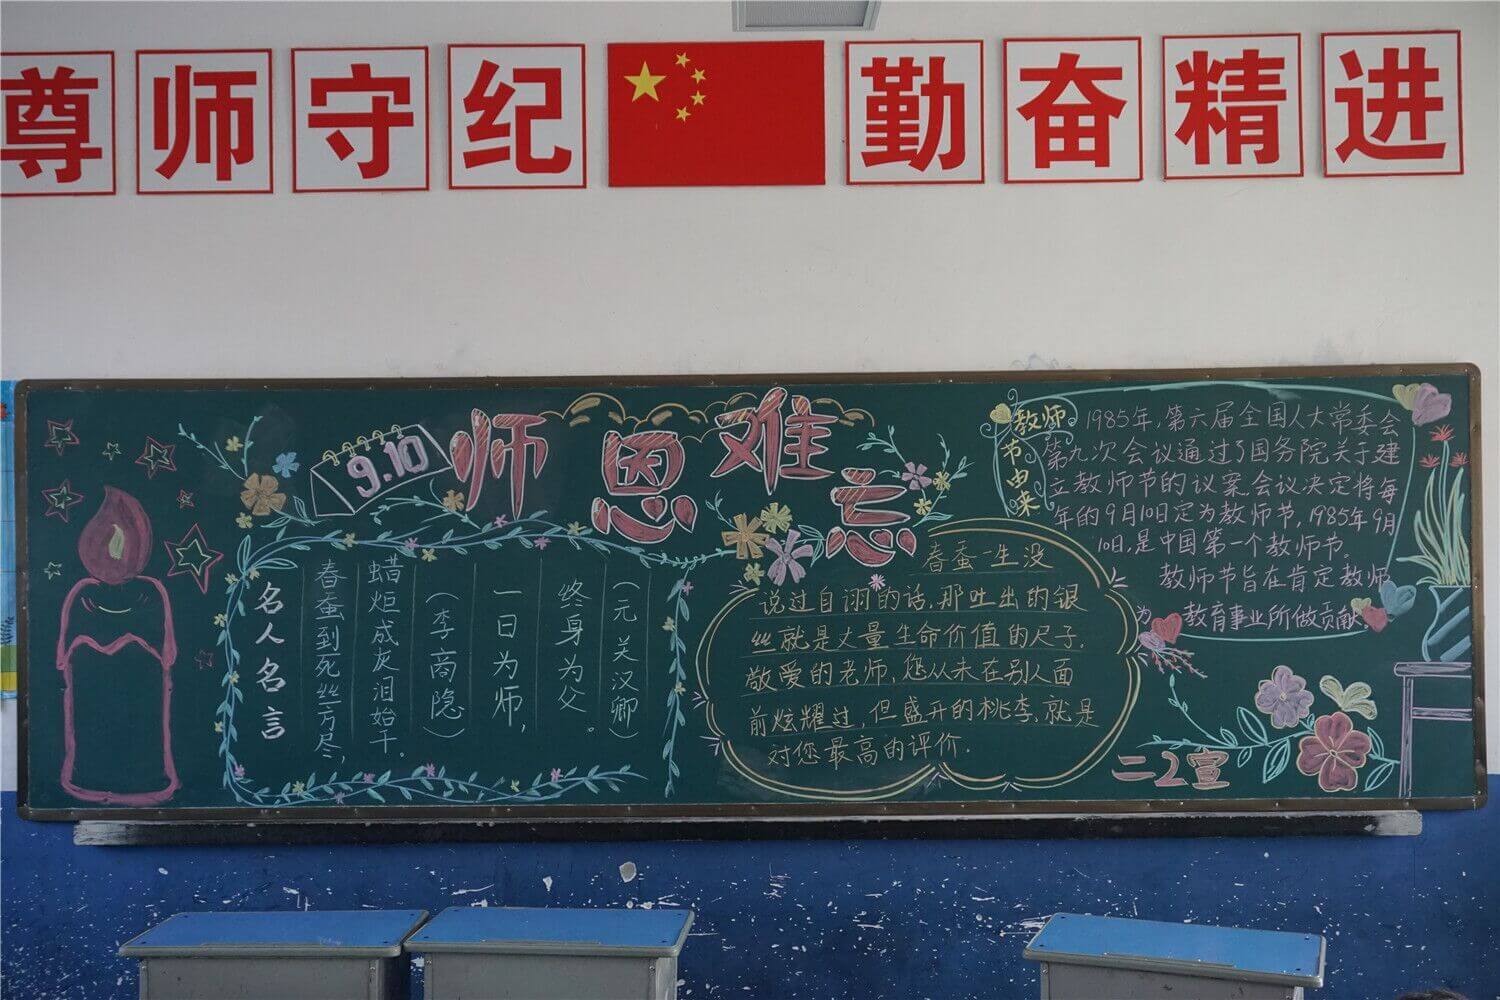 尊师守纪
勤奋精进
9.10
师恩难忘
名人名言
春蚕到死丝方尽,
蜡炬成灰泪始干。
(李商隐)
一日为师,
终身为父。
(元 关汉卿)
春蚕一生没
说过自诩的话,那吐出的银
丝就是丈量生命价值的尺子.
敬爱的老师,您从未在别人面
前炫耀过,但盛开的桃李,就是
对您最高的评价.
教师
节
由
来
1985年,第六届全国人大常委会
第九次会议通过了国务院关于建
立教师节的议案.会议决定将每
年的9月10日定为教师节,1985年9月
10日,是中国第一个教师节。
教师节旨在肯定教师
为 教育事业所做贡献
二2宣